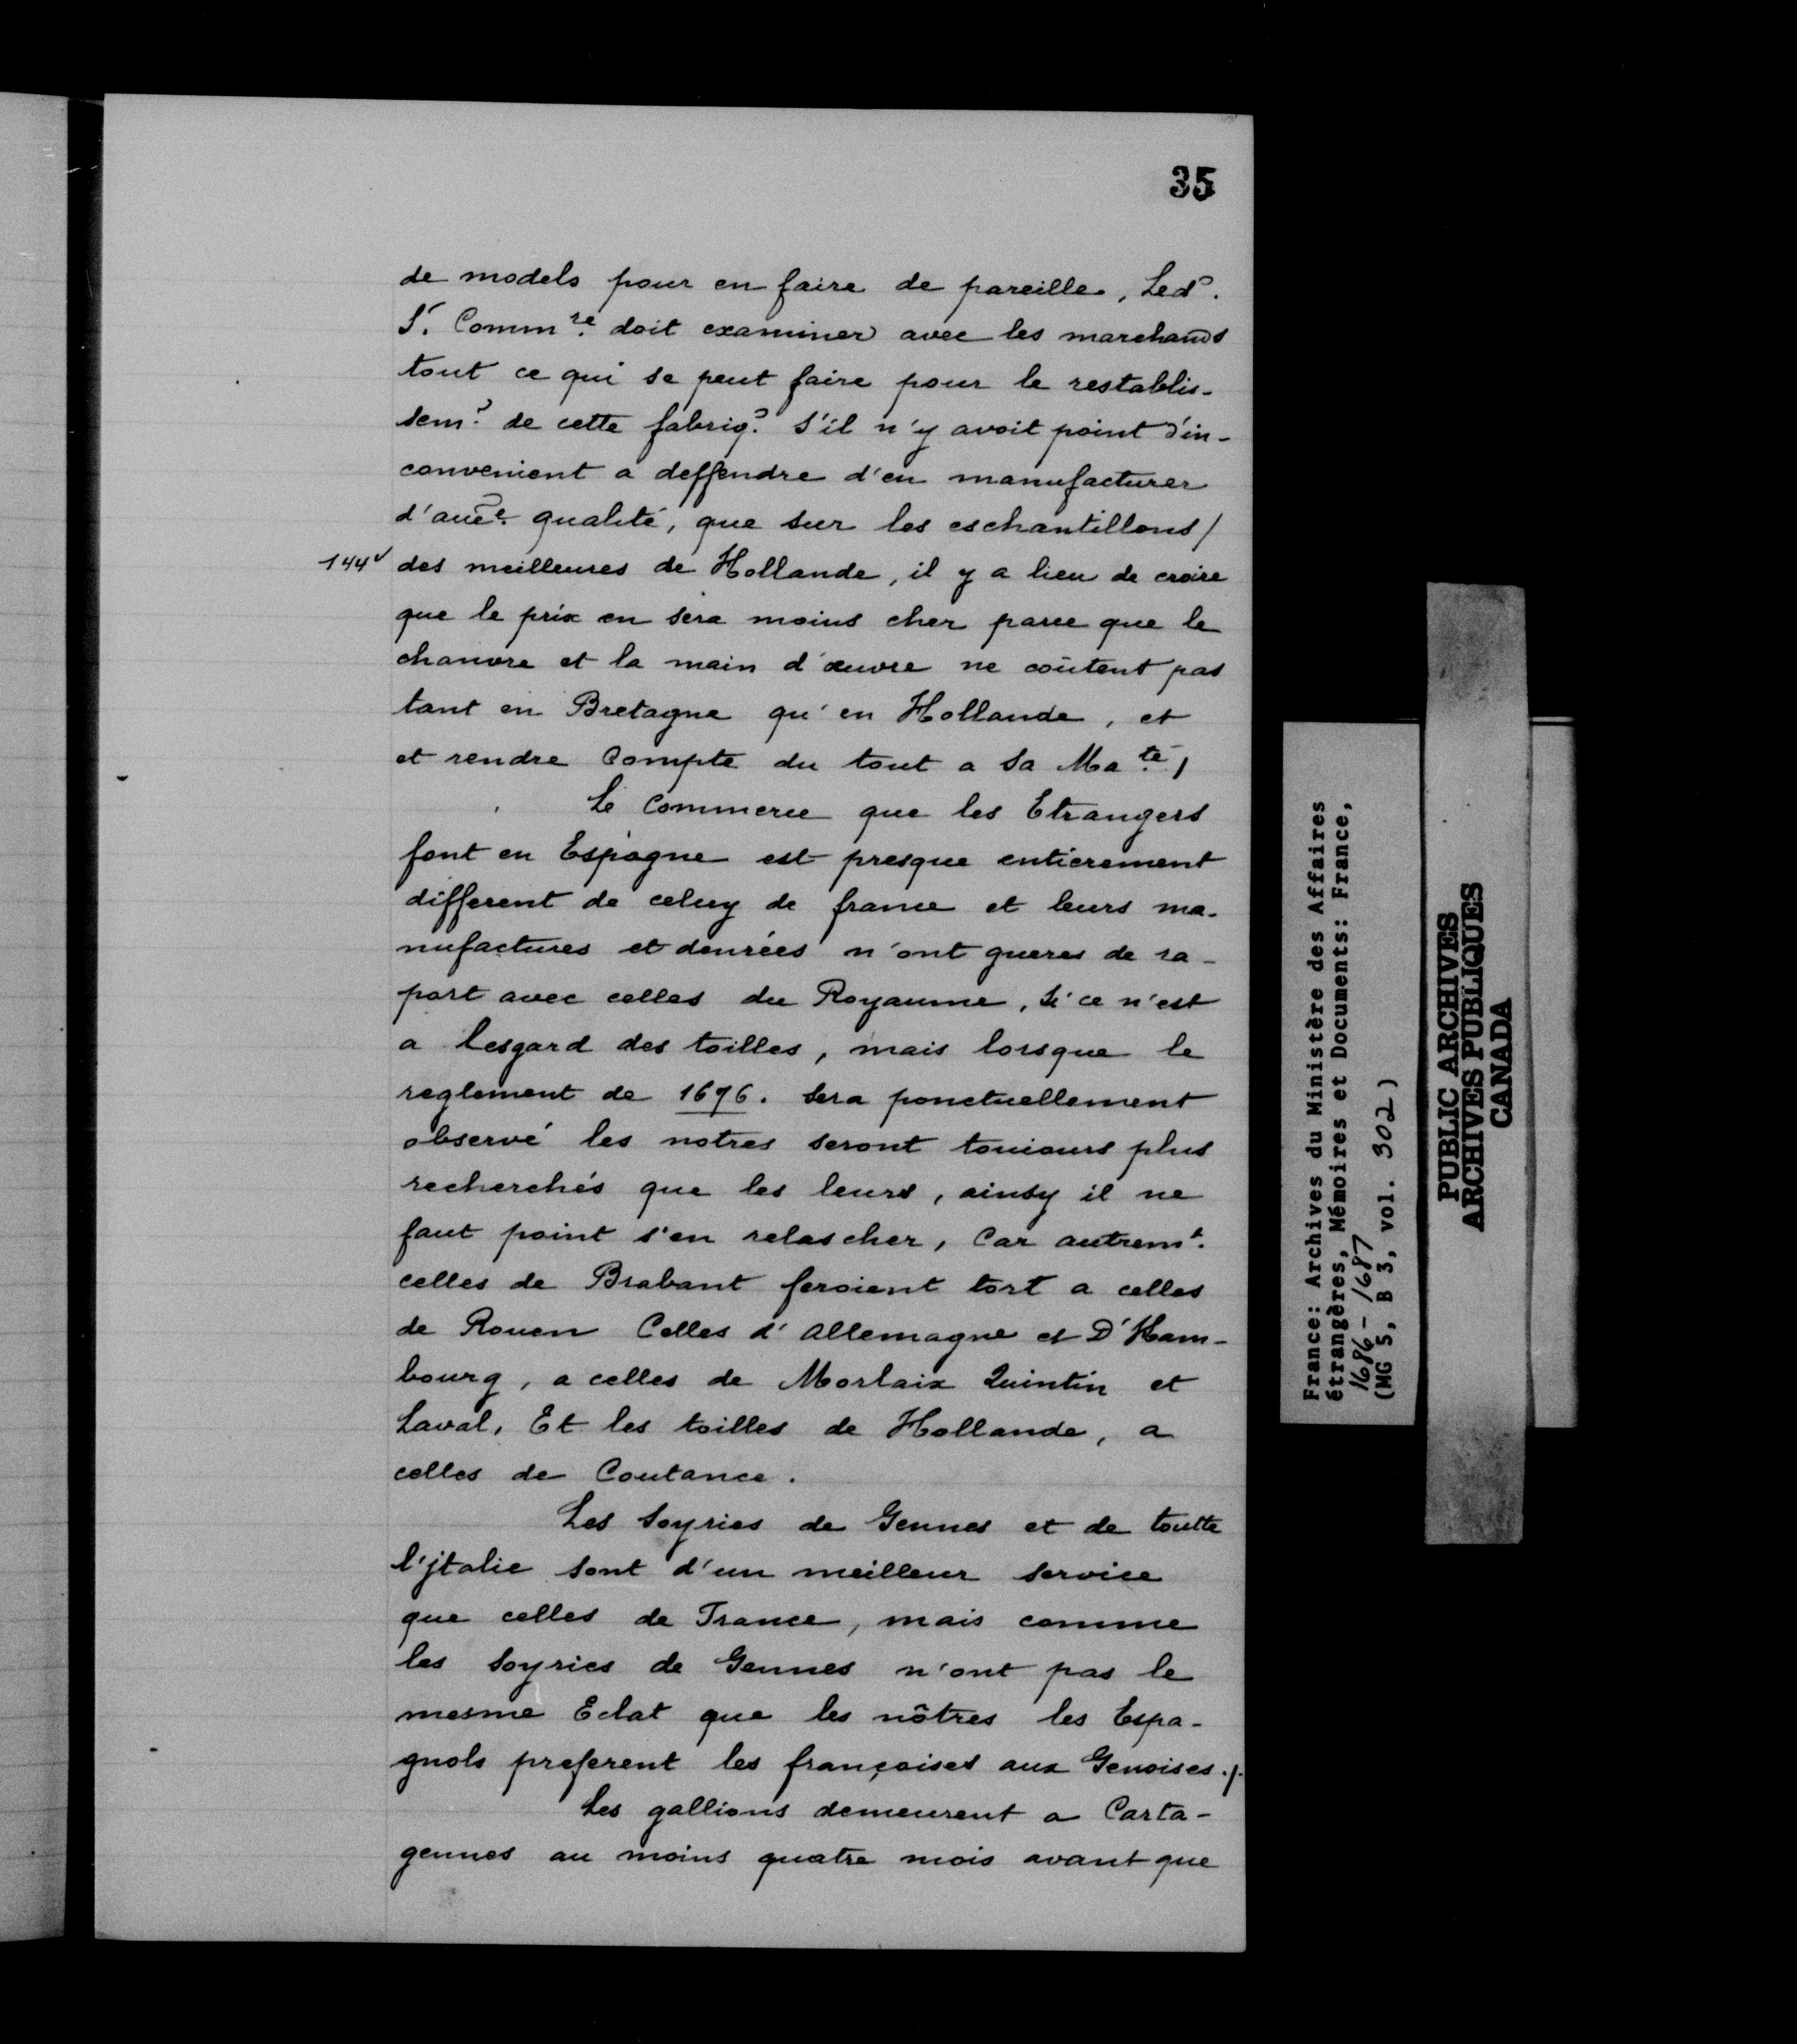 35
de models pour en faire de pareille, Led?.
Sr. Commre. doit examiner avec les marchands
tout ce qui se peut faire pour le restablis-
sem? de cette fabriq? s'il n'y avoit point d'in-
convenient a deffendre d'en manufacturer
qualité, que sur les eschantillons /
144v des meilleures de Hollande, il y a lieu de croire
que le prix en sera moins cher parce que le
chanvre et la main d'œuvre ne coûtent pas
tant en Bretagne qu'en Hollande, et
et rendre Compte du tout a Sa Maté /
Le Commerce que les Etrangers
font en Espagne est presque entierement
different de celuy de france et leurs ma-
nufactures et denrées n'ont gueres de ra-
port avec celles du Royaume, Si ce n'est
a Lesgard des toilles, mais lorsque le
reglement de 1676. sera ponctuellement
observé les notres seront touiours plus
recherchés que les leurs, ainsy il ne
faut point s'en relascher, Car autremt.
celles de Brabant feroient tort a celles
de Rouen Celles d'allemagne et D'Ham-
bourg, a celles de Morlaix Quintin et
Laval, Et les toilles de Hollande, a
celles de Coutance.
Les Soyries de Gennes et de toutte
l'jtalie sont d'un meilleur service
que celles de France, mais comme
les Soyries de Gennes n'ont pas le
mesme Eclat que les nôtres les Espa-
gnols preferent les françaises aux Genoises./.
Les gallions demeurent a Carta-
gennes au moins quatre mois avant que
France: Archives du Ministère des Affaires
étrangères, Mémoires et Documents: France,
1686 - 1687
(MG 5, B 3, vol. 302)
PUBLIC ARCHIVES
ARCHIVES PUBLIQUES
CANADA